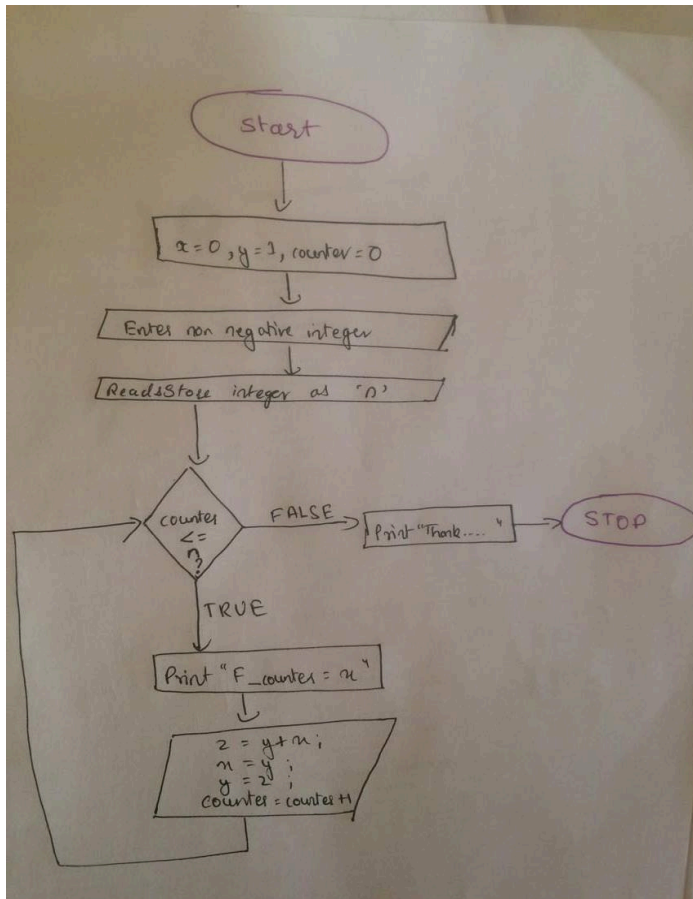 Start
x=0, y=1, counter=0
Enter non negative integer
Read&Store integer as 'n'
counter
<=
n?
FALSE
Print "Thank...."
STOP
TRUE
Print "F_counter = x"
z = y+x;
x = y ;
y = z ;
counter = counter+1